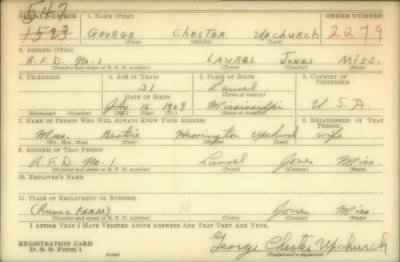 547
SERIAL NUMBER 1. NAME (Print) ORDER NUMBER
1523 GEORGE CHESTER UPCHURCH 2279
(First) (Middle) (Last)
2. ADDRESS (Print)
R.F.D. No. 1 LAUREL JONES MISS.
(Number and street or R. F. D. number) (Town) (County) (State)
3. TELEPHONE 4. AGE IN YEARS 5. PLACE OF BIRTH 6. COUNTRY OF CITIZENSHIP
31 Laurel
DATE OF BIRTH (Town or county)
July 16 1909 Mississippi U.S.A.
(Exchange) (Number) (Mo.) (Day) (Yr.) (State or country)
7. NAME OF PERSON WHO WILL ALWAYS KNOW YOUR ADDRESS 8. RELATIONSHIP OF THAT PERSON
Mrs. Upchurch wife
(Mr., Mrs., Miss) (First) (Middle) (Last)
9. ADDRESS OF THAT PERSON
R.F.D. No. 1 Laurel Jones Miss.
(Number and street or R. F. D. number) (Town) (County) (State)
10. EMPLOYER'S NAME
11. PLACE OF EMPLOYMENT OR BUSINESS
FARM) Jones Miss.
(Number and street or R. F. D. number) (Town) (County) (State)
I AFFIRM THAT I HAVE VERIFIED ABOVE ANSWERS AND THAT THEY ARE TRUE.
REGISTRATION CARD
D. S. S. Form 1 George Chester Upchurch
(Registrant's signature)